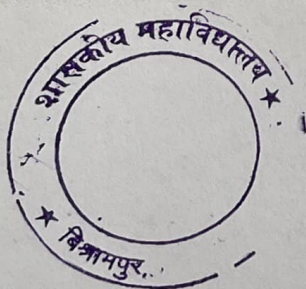 शासकीय महाविद्यालय
★ बिश्रामपुर ★